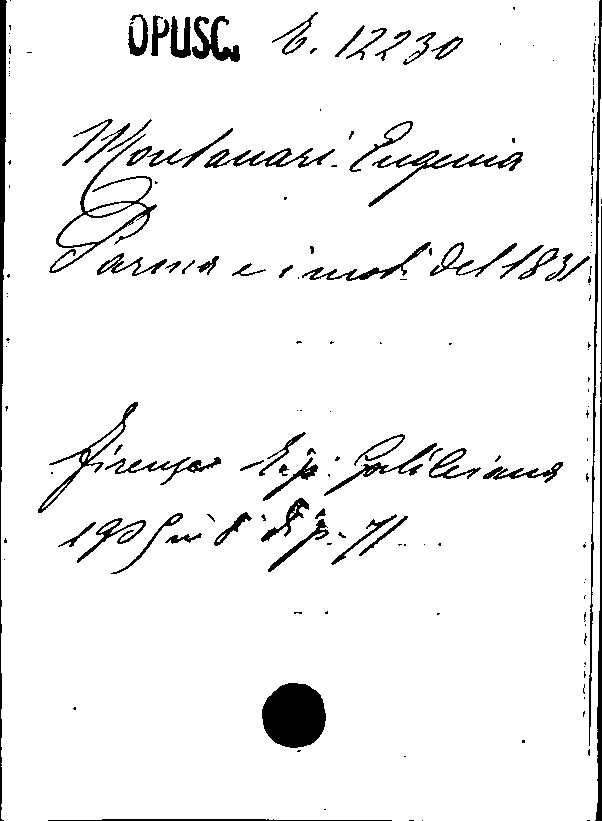 OPUSC. E. 12230
Montanari Eugenia
Parma e i moti del 1831
Firenze Tip. Galileiana
1905 in 8° di p. 71